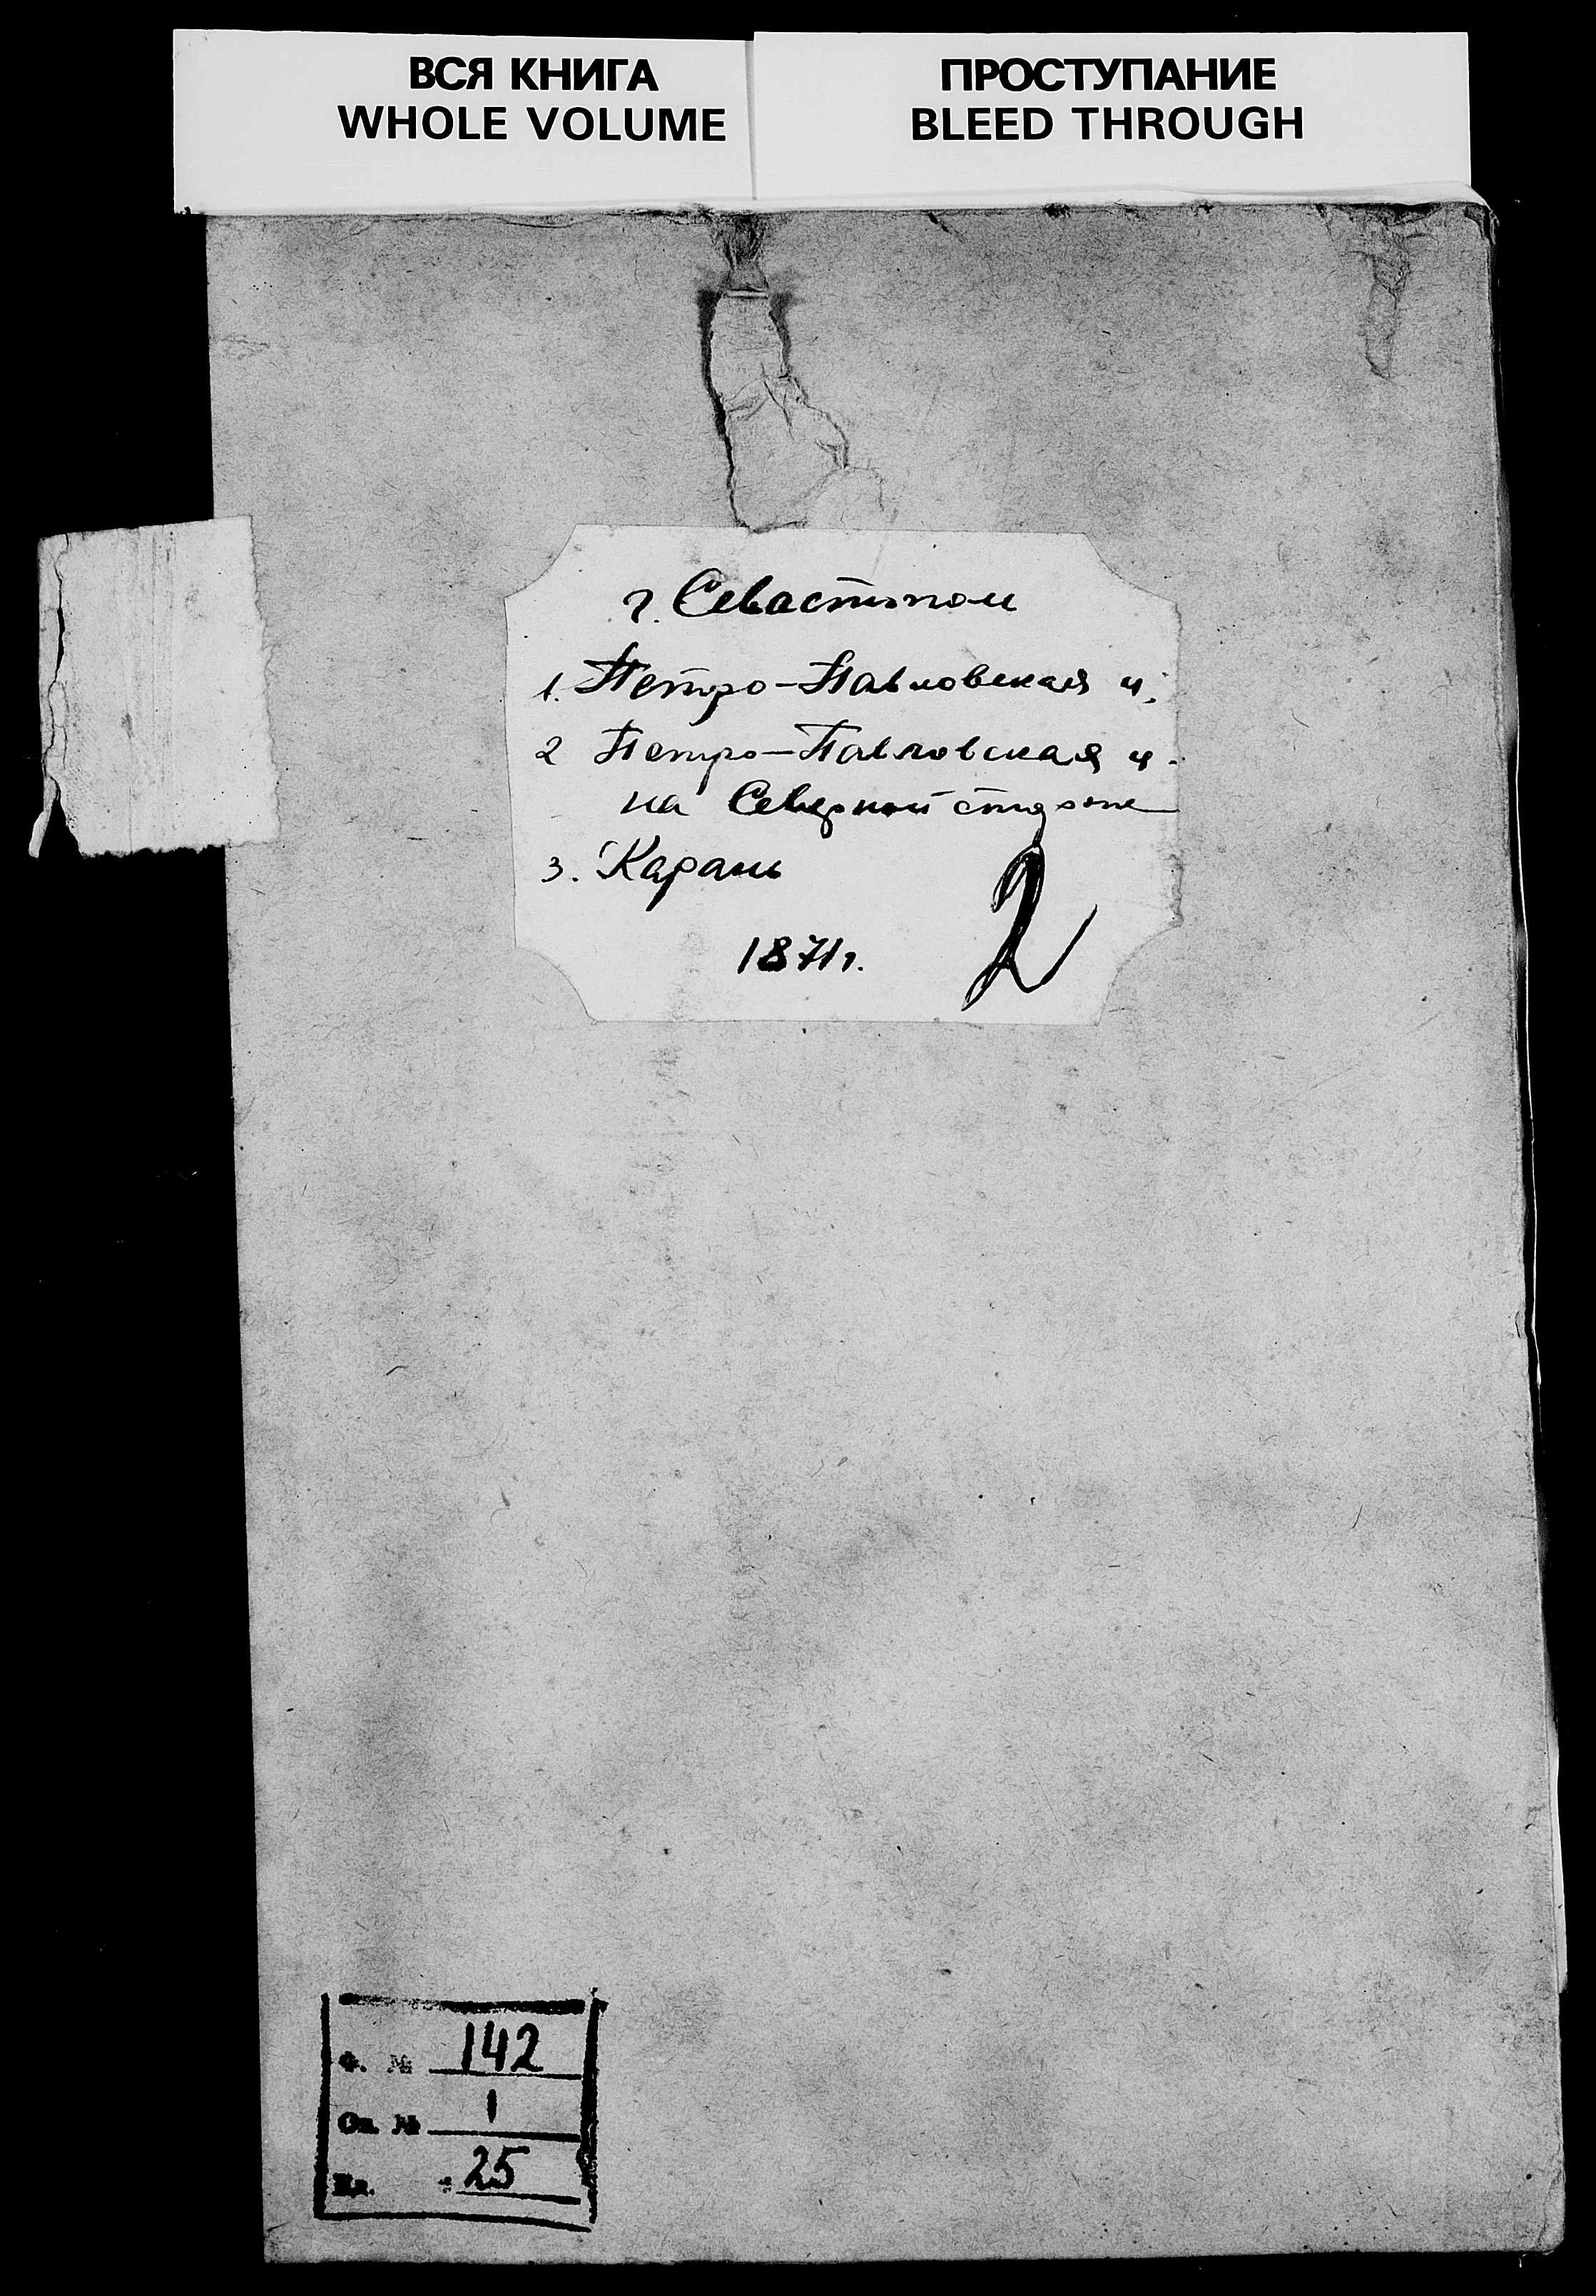 ВСЯ КНИГА
WHOLE VOLUME
ПРОСТУПАНИЕ
BLEED THROUGH
г. Севастополь
1. Петро-Павловская ц.
2 Петро-Павловская ц.
на Северной стороне
3. Карань
1871 г.
2
Ф. № 142
Оп. № 1
Ед. 25